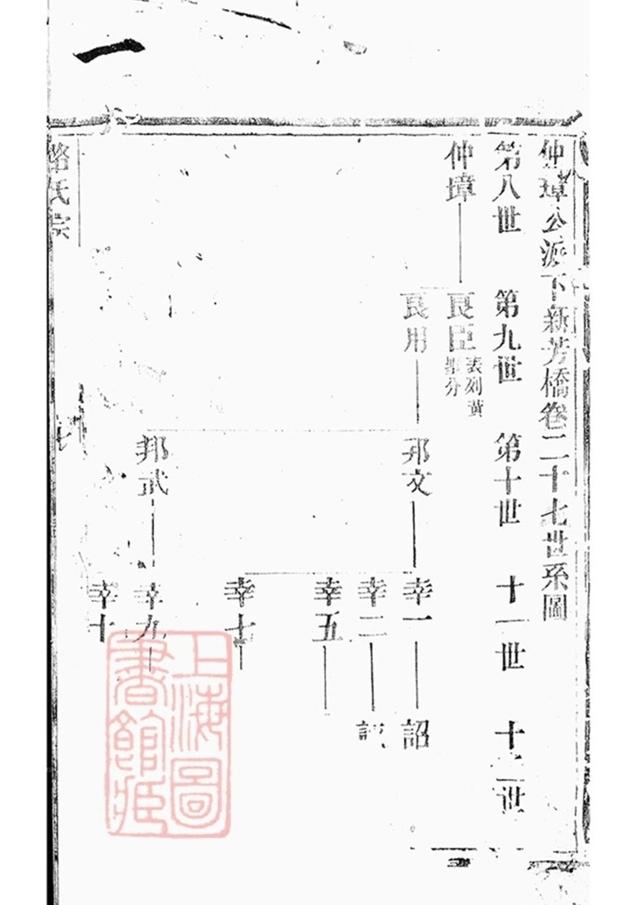 一
仲璋公派下新芳橋卷二十七世系圖
第八世 第九世 第十世 十一世 十二世
仲璋
良臣
表列黃
良用
邦文
幸一
詔
幸二
幸五
幸七
邦武
幸九
幸十
氏宗
上海圖
書館藏